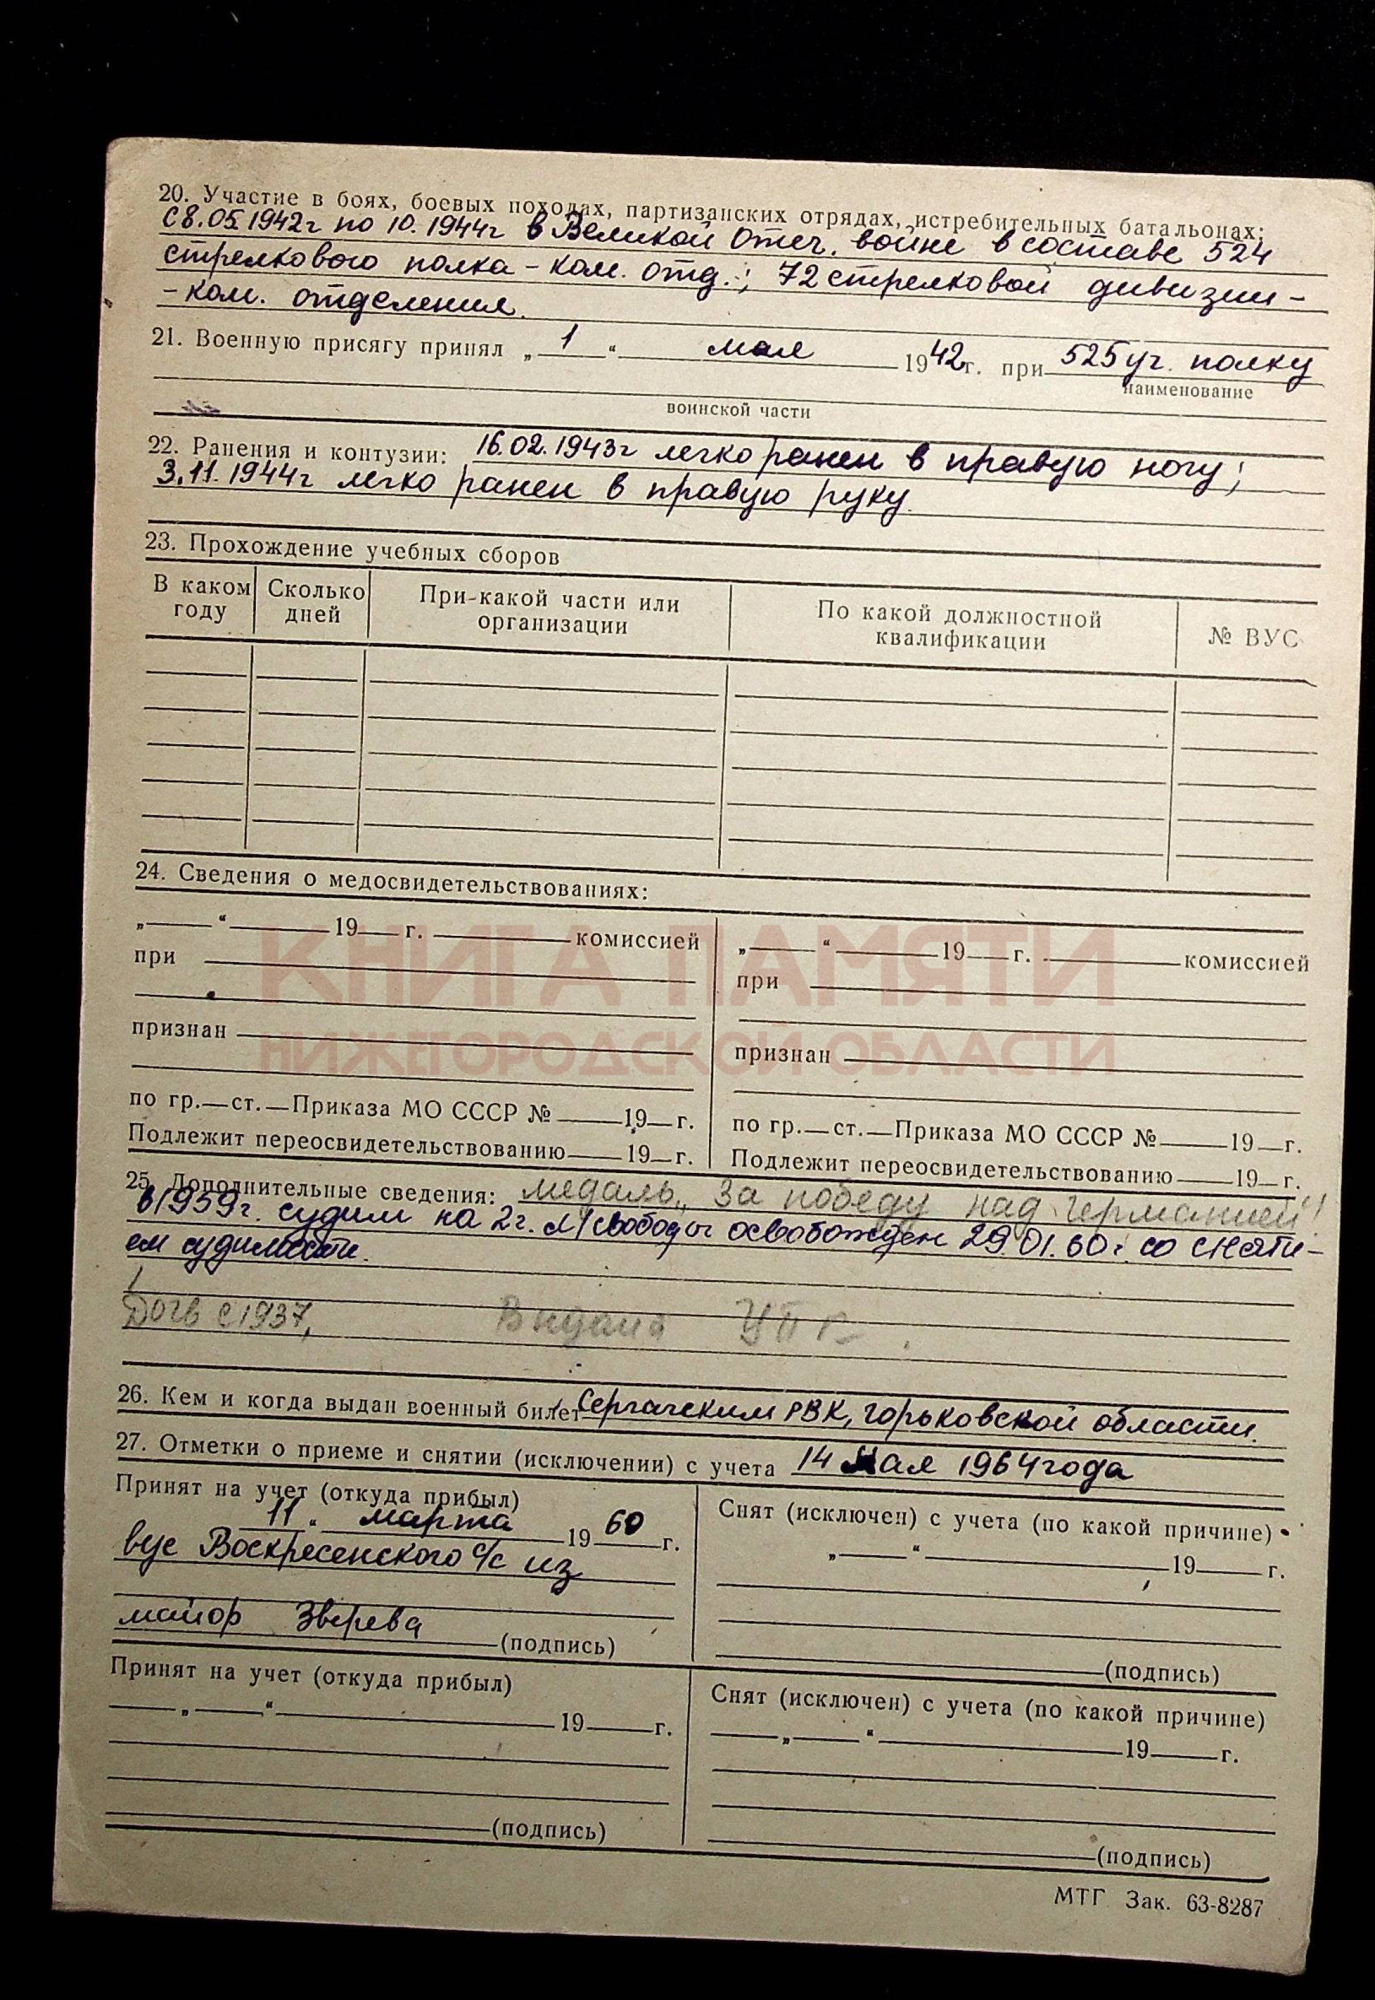 20. Участие в боях, боевых походах, партизанских отрядах, истребительных батальонах:
С 8.05.1942г по 10.1944г в Великой Отеч. войне в составе 524
стрелкового полка - ком. отд.; 72 стрелковой дивизии -
- ком. отделения.
21. Военную присягу принял „ 1 “ мая 1942г. при 525 уч. полку
наименование
воинской части
22. Ранения и контузии: 16.02.1943г легко ранен в правую ногу;
3.11.1944г легко ранен в правую руку.
23. Прохождение учебных сборов
В каком году Сколько дней При какой части или организации По какой должностной квалификации № ВУС
24. Сведения о медосвидетельствованиях:
„ “ 19 г. комиссией „ “ 19 г. комиссией
при при
КНИГА ПАМЯТИ
признан признан
НИЖЕГОРОДСКОЙ ОБЛАСТИ
по гр. ст. Приказа МО СССР № 19 г. по гр. ст. Приказа МО СССР № 19 г.
Подлежит переосвидетельствованию 19 г. Подлежит переосвидетельствованию 19 г.
25. Дополнительные сведения: медаль „За победу над Германией"
в 1959г. судим на 2г. л/свободы освобожден 29.01.60г. со сняти-
ем судимости.
с 1937,
26. Кем и когда выдан военный билет Сергачским РВК, Горьковской области.
27. Отметки о приеме и снятии (исключении) с учета 14 мая 1964 года
Принят на учет (откуда прибыл) Снят (исключен) с учета (по какой причине)
11 “ марта 1960 г. „ “ 19 г.
вус Воскресенского с/с из
майор Зверева (подпись) (подпись)
Принят на учет (откуда прибыл) Снят (исключен) с учета (по какой причине)
„ “ 19 г. „ “ 19 г.
(подпись) (подпись)
МТГ Зак. 63-8287